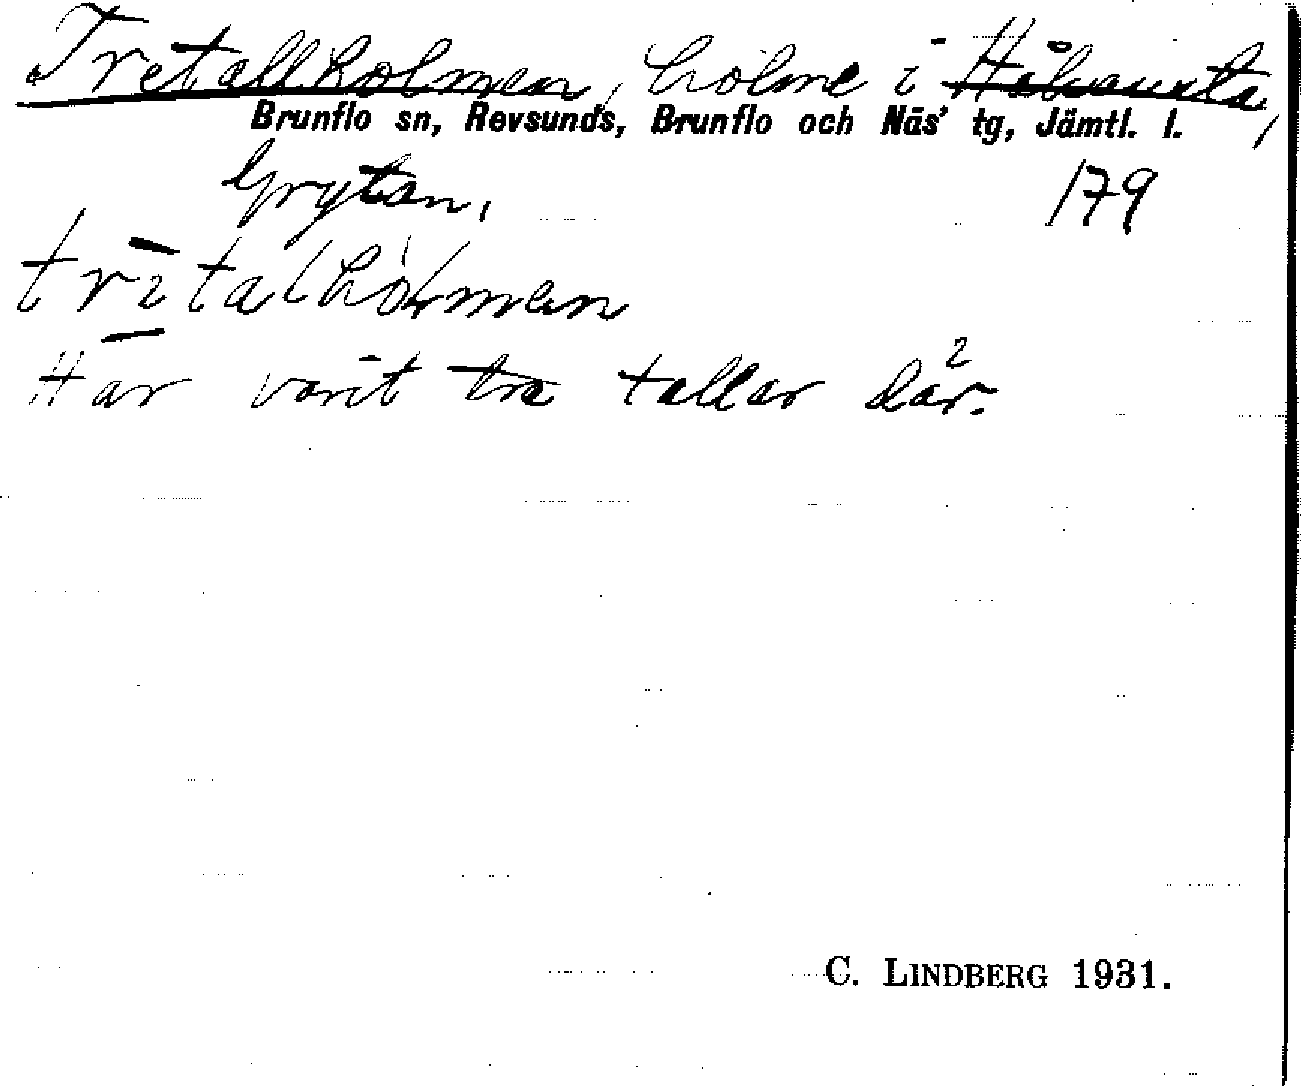 Tretallholmen, holme i Håkansta,
Brunflo sn, Revsunds, Brunflo och Näs' tg, Jämtl. l.
Grytan, 179
tritalhòlmen
Har varit tre tallar där.
C. LINDBERG 1931.